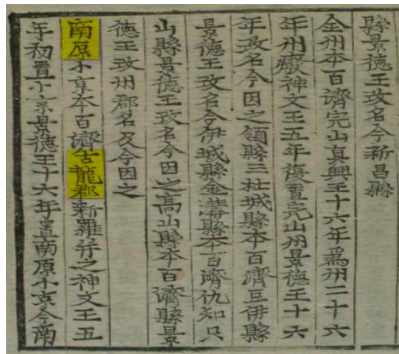 縣景德王攺名今新昌縣
全州本百濟完山眞興王十六年爲州二十六
年州廢神文王五年復置完山州景德王十六
年攺名今因之領縣三杜城縣本百濟豆伊縣
景德王攺名今伊城縣金溝縣本百濟仇知只
山縣景德王攺名今因之高山縣本百濟縣景
德王攺州郡名及今因之
南原小京本百濟古龍郡新羅并之神文王五
年初置小京景德王十六年置南原小京今南